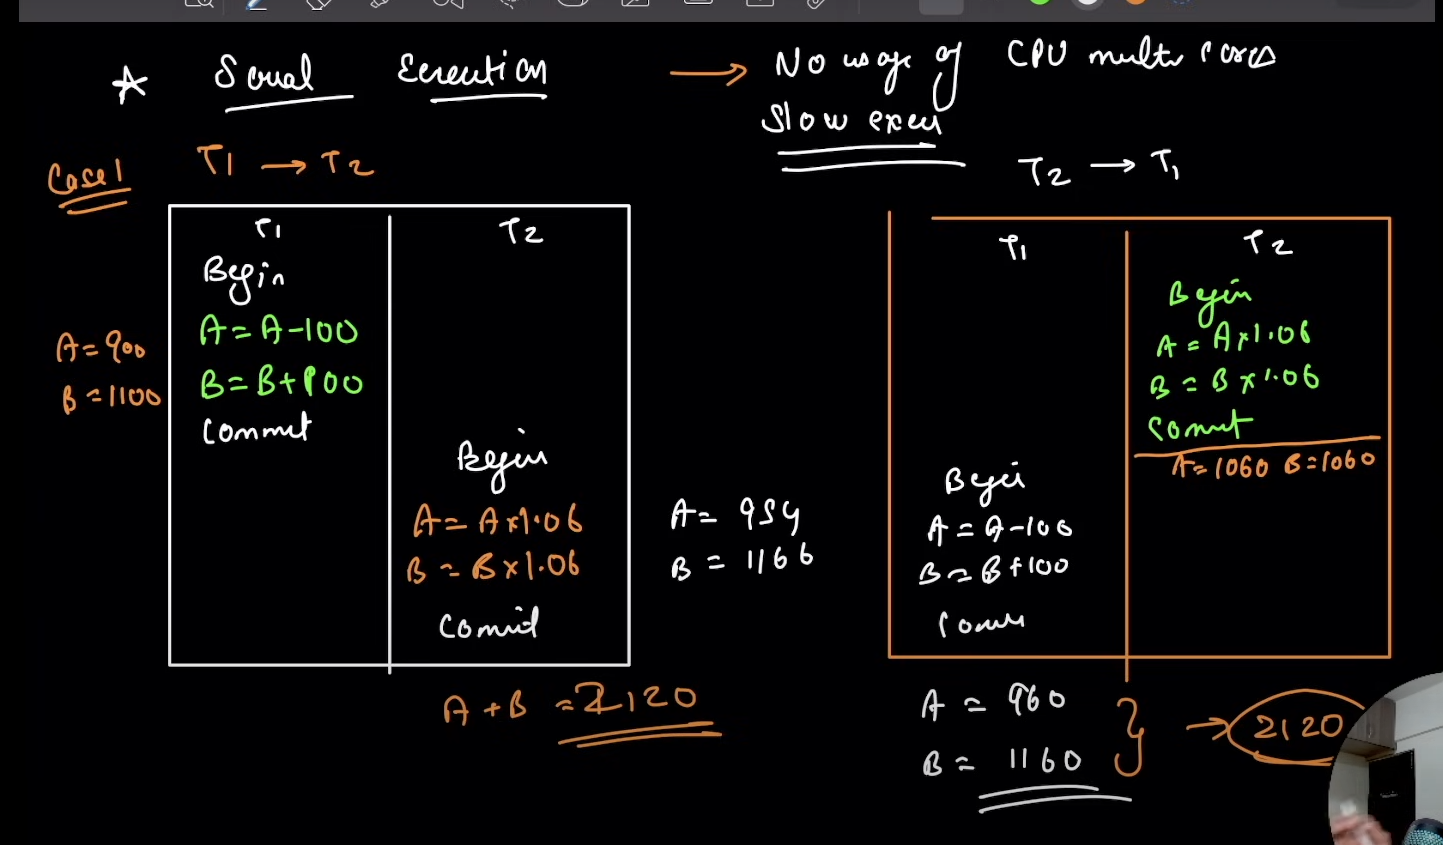 ★ Serial Execution → No usage of CPU multi cores
Slow exec
Case 1 T1 → T2
T2 → T1
T1 T2
Begin
A = A - 100
B = B + 100
Commit
A = 900
B = 1100
Begin
A = A x 1.06
B = B x 1.06
Commit
A = 954
B = 1166
A + B = 2120
T1 T2
Begin
A = A x 1.06
B = B x 1.06
Commit
A = 1060 B = 1060
Begin
A = A - 100
B = B + 100
Comm
A = 960
B = 1160
} → 2120